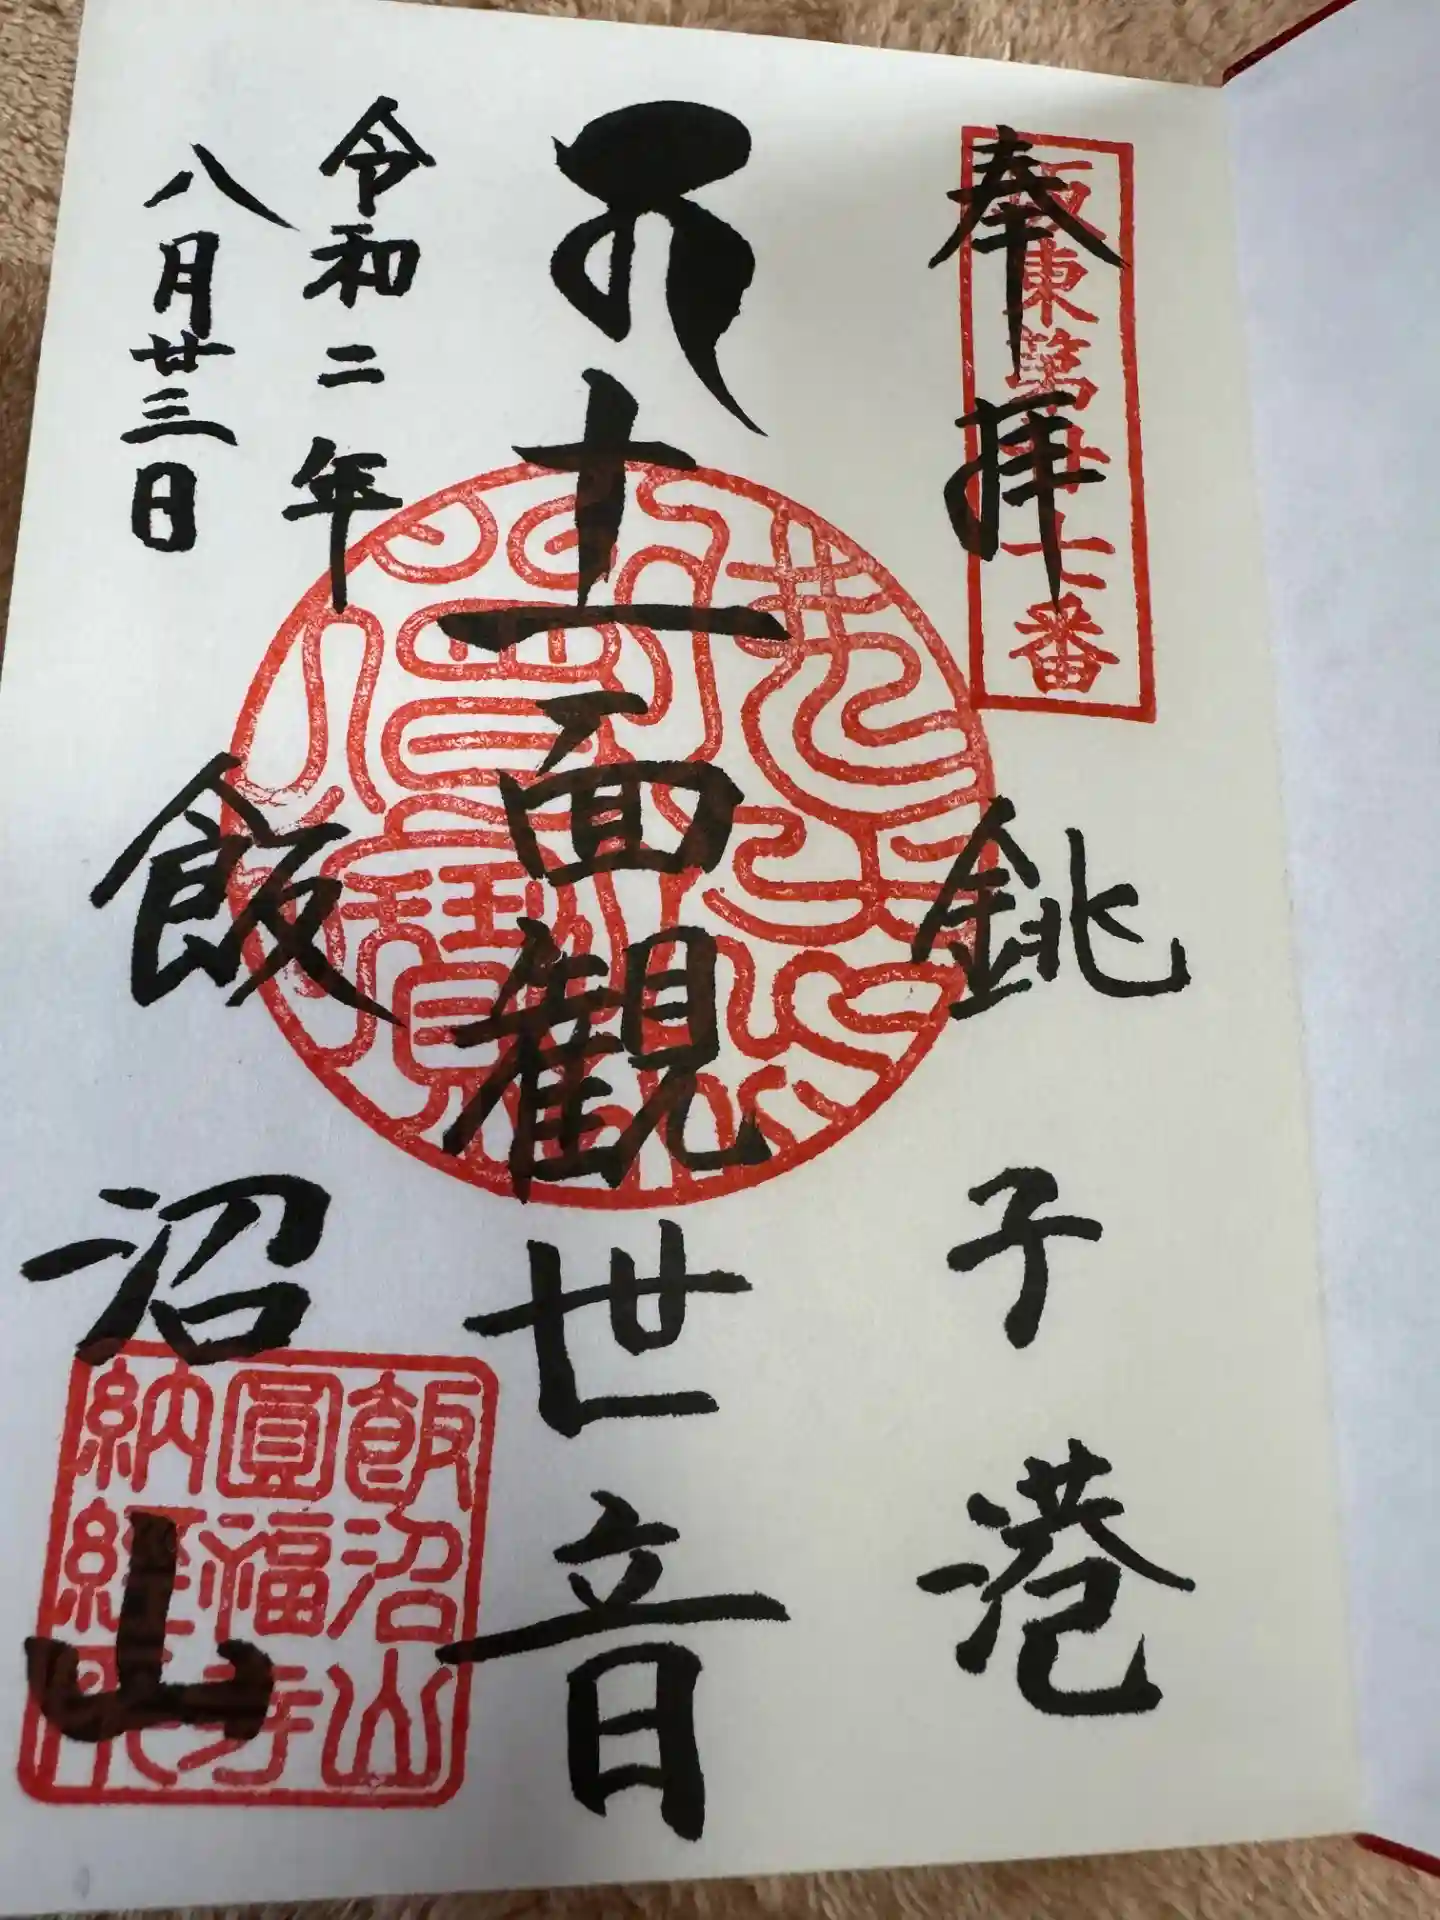 奉拝
坂東第廿七番
銚子港
十一面観世音
令和二年
八月廿三日
飯沼山
飯沼山
圓福寺
納経